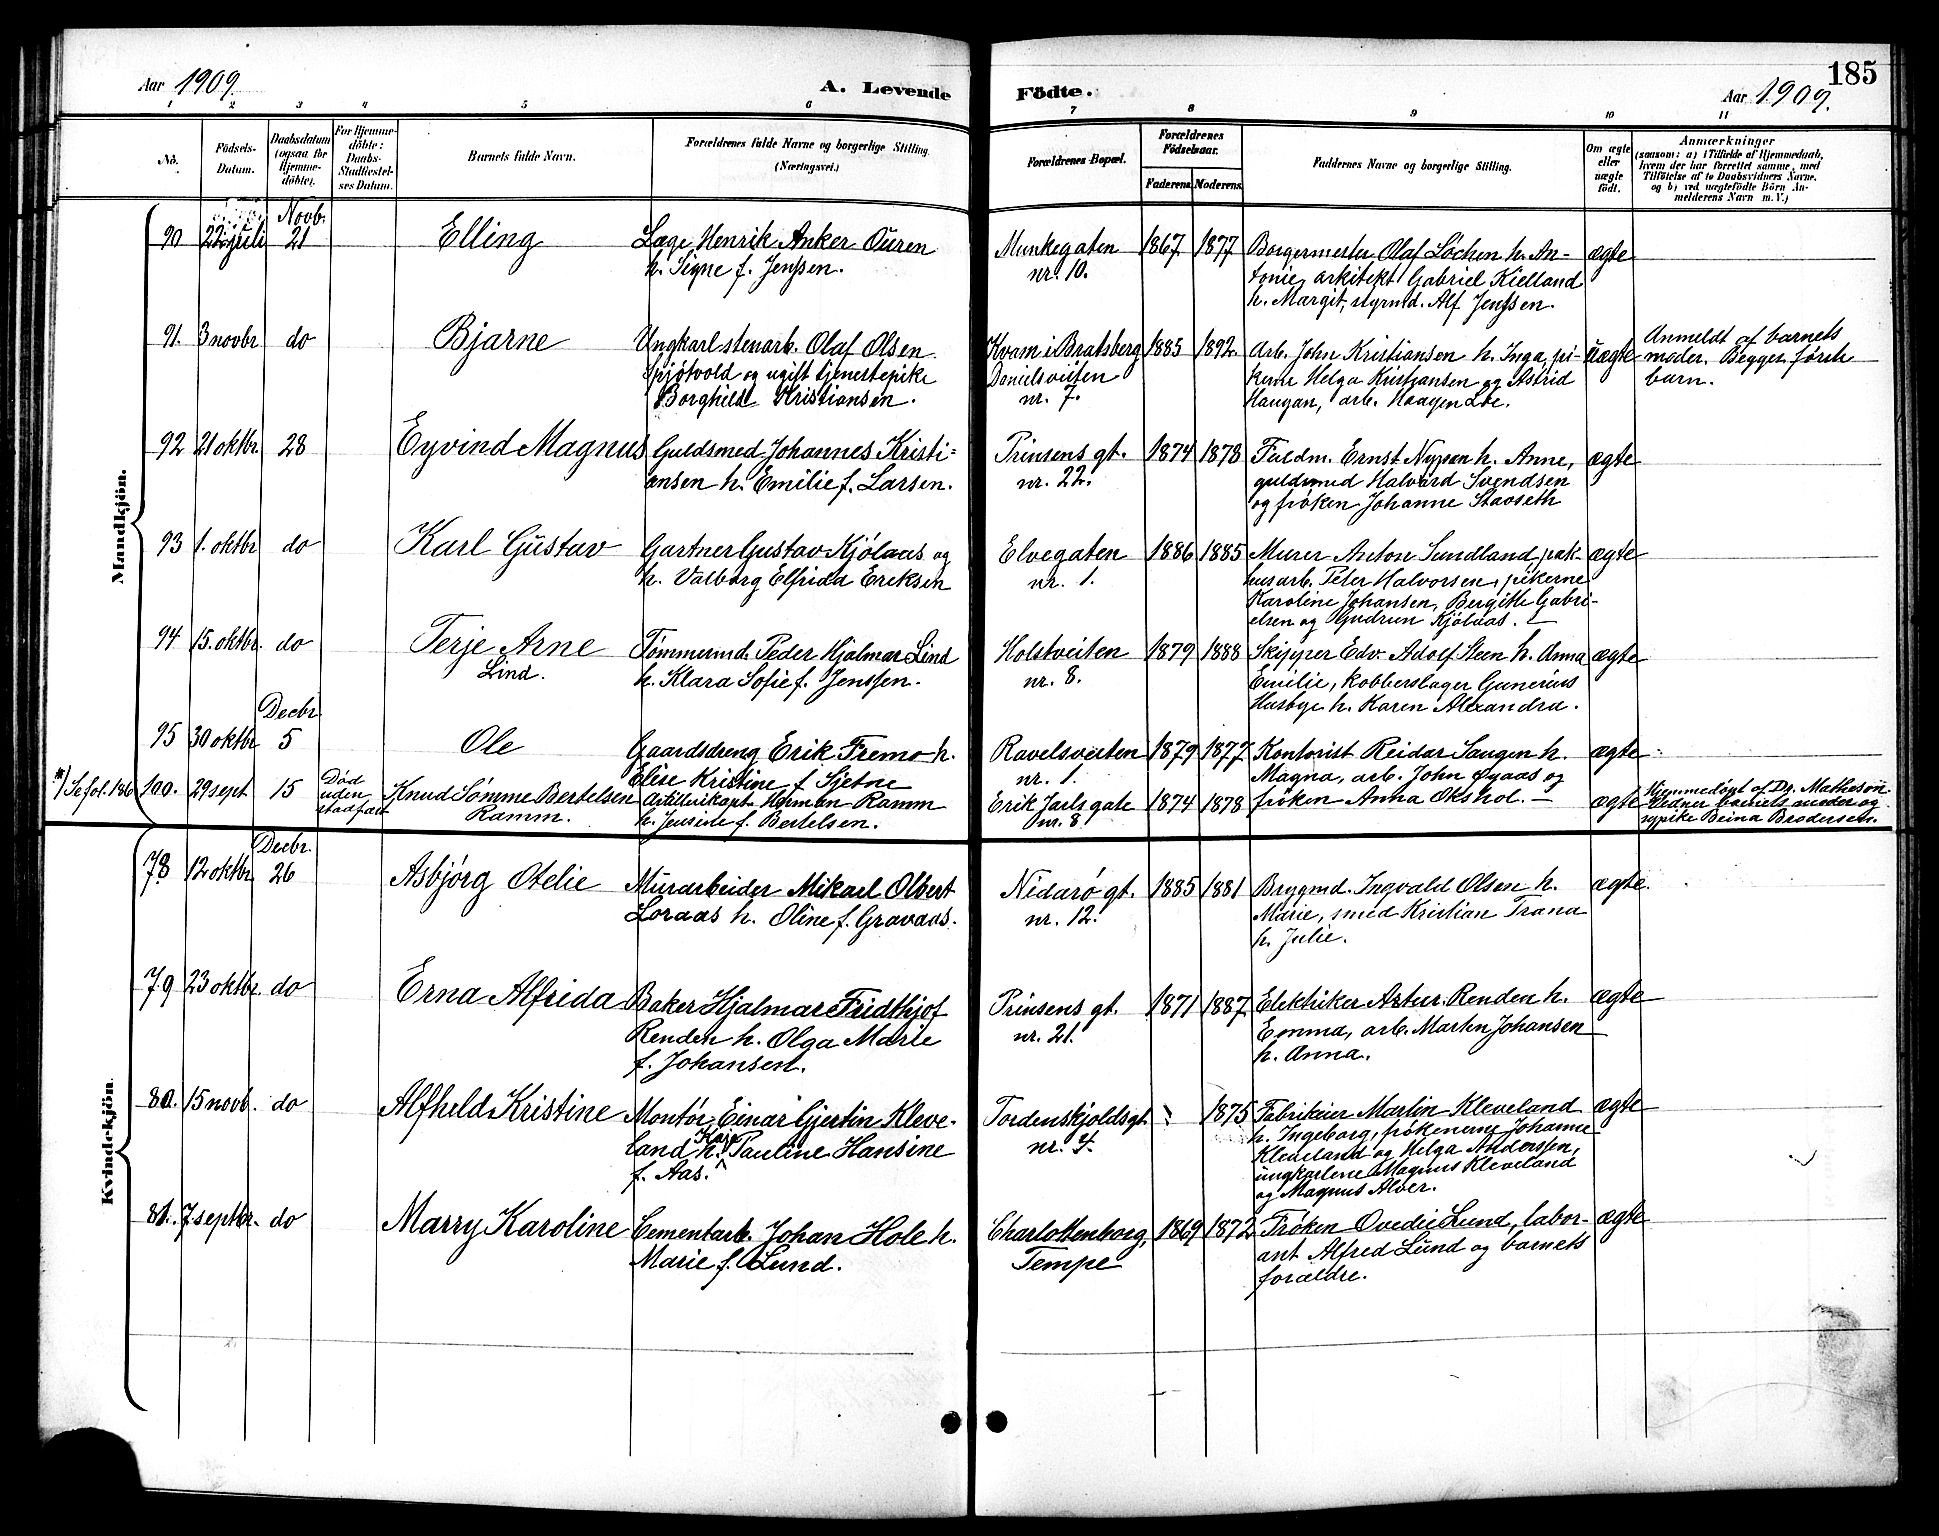 185
Aar 1909.
A. Levende
Fødte.
Aar 1909.
1 2 3 4 5 6 7 8 9 10 11
No.
Fødsels-
Datum.
Daabsdatum
(ogsaa for
Hjemme-
døbte).
For Hjemme-
døbte:
Daabs-
Stadfæstel-
ses Datum.
Barnets fulde Navn.
Forældrenes fulde Navne og borgerlige Stilling
(Næringsvei.)
Forældrenes Bopæl.
Forældrenes
Fødselsaar.
Faderens. Moderens.
Faddernes Navne og borgerlige Stilling.
Om ægte
eller
uægte
født.
Anmærkninger
(saasom: a) i Tilfælde af Hjemmedaab,
hvem der har forrettet samme, med
Tilføielse af to Daabsvidners Navne,
og b) ved uægtefødte Børn An-
melderens Navn m. V.)
Mandkjøn.
90 22 juli Novb. 21
Elling
Læge Henrik Anker Ouren
h. Signe f. Jenssen.
Munkegaten
nr. 10.
1867 1877
Borgermester Olaf Løchen h. An-
tonie, arkitekt Gabriel Kielland
h. Margit, styrmd. Alf Jenssen.
ægte
91. 3 novbr do
Bjarne
Ungkarl stenarb. Olaf Olsen
Spjøtvold og ugift tjenestepike
Borghild Kristiansen.
Kvam i Bratsberg
Danielsveiten
nr. 7.
1885 1892
Arb. John Kristiansen h. Inga, pi-
kerne Helga Kristiansen og Astrid
Haugan, arb. Haagen Loe.
uægte
Anmeldt af barnets
moder. Begges første
barn.
92 21 oktbr. 28
Eyvind Magnus
Guldsmed Johannes Kristi-
ansen h. Emilie f. Larsen.
Prinsens gt.
nr. 22.
1874 1878
Fuldm. Ernst Nypan h. Anne,
guldsmed Halvard Svendsen
og frøken Johanne Stavseth
ægte
93 1. oktbr do
Karl Gustav
Gartner Gustav Kjølaas og
h. Valborg Elfrida Eriksen
Elvegaten
nr. 1.
1886 1885
Murer Anton Sundland, pak-
husarb. Peter Halvorsen, pikerne
Karoline Johansen, Bergithe Gabri-
elsen og Gudrun Kjølaas.
ægte
94 15. oktbr. do
Terje Arne
Lind.
Tømmermd. Peder Hjalmar Lind
h. Klara Sofie f. Jenssen.
Holstveiten
nr. 8.
1879 1888
Skipper Edv. Adolf Steen h. Anna
Emilie, kobberslager Gunerius
Husbye h. Karen Alexandra.
ægte
95 30 oktbr Decbr. 5
Ole
Gaardsdreng Erik Fremo h.
Elise Kristine f. Sjetne
Ravelsveiten
nr. 1.
1879 1877
Kontorist Reidar Saugen h.
Magna, arb. John Øyaas og
frøken Anna Okshol.
ægte
*) Se fol. 186
100. 29 sept 15
Død
uden
stadfæst
Knud Sømme Bertelsen
Ramm.
Artillerikapt. Herman Ramm
h. Jensine f. Bertelsen.
Erik Jarls gate
nr. 8
1874 1878
ægte
Hjemmedøbt af Dr. Matheson
Vidner barnets moder og
sypike Beina Brodersen.
Kvindekjøn.
78 12 oktbr. Decbr. 26
Asbjørg Otelie
Murarbeider Mikael Olbert
Loraas h. Oline f. Gravaas.
Nidarø gt.
nr. 12.
1885 1881
Brygmd. Ingvald Olsen h.
Marie, smed Kristian Trana
h. Julie.
ægte
79 23 oktbr. do
Erna Alfrida
Baker Hjalmar Fridthjof
Renden h. Olga Marie
f. Johansen.
Prinsens gt.
nr. 21.
1871 1887
Elektriker Artur Renden h.
Emma, arb. Martin Johansen
h. Anna.
ægte
80. 15 novb. do
Alfhild Kristine
Montør Einar Gjertin Kleve-
land h. Kaja Pauline Hansine
f. Aas.
Tordenskjoldsgt.
nr. 4.
1875
Fabrikeier Martin Kleveland
h. Ingeborg, frøknerne Johanne
Kleveland og Helga Andorssen,
ungkarlene Magnus Kleveland
og Magnus Alver.
ægte
81. 7 septbr. do
Marry Karoline
Cementarb. Johan Hole h.
Marie f. Lund.
Charlottenborg,
Tempe
1869 1872
Frøken Ovedie Lund, labor-
ant Alfred Lund og barnets
forældre.
ægte